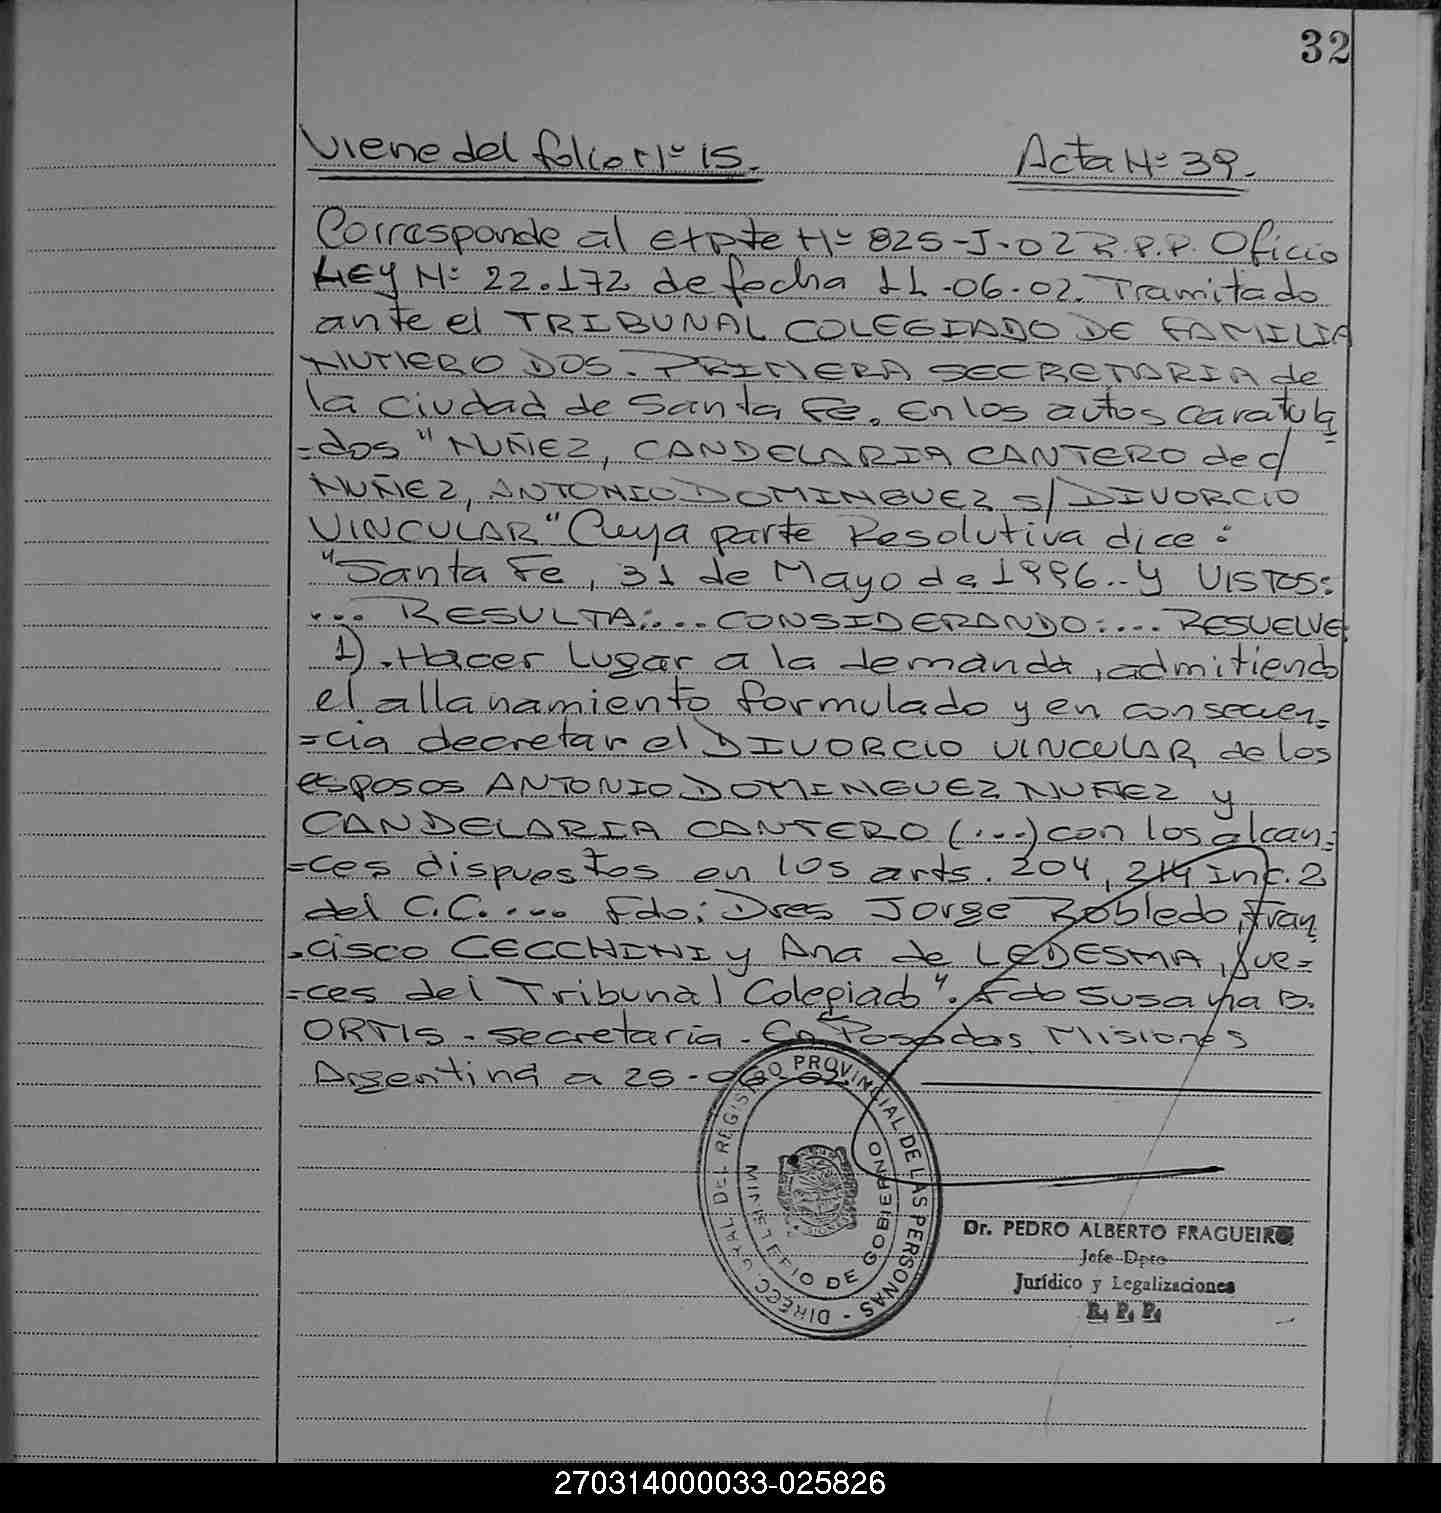 32
Viene del folio Nº 15.
Acta Nº 39.
Corresponde al Expte Nº 825-J-02 R.P.P. Oficio
LEY Nº 22.172 de fecha 11-06-02. Tramitado
ante el TRIBUNAL COLEGIADO DE FAMILIA
NUMERO DOS. PRIMERA SECRETARIA de
la ciudad de Santa Fe. En los autos caratula
=dos "NUÑEZ, CANDELARIA CANTERO de c/
NUÑEZ, ANTONIO DOMINGUEZ s/ DIVORCIO
VINCULAR" Cuya parte Resolutiva dice:
"Santa Fe, 31 de Mayo de 1996.. Y VISTOS:
... RESULTA:... CONSIDERANDO:.... RESUELVE:
1). Hacer lugar a la demanda, admitiendo
el allanamiento formulado y en consecuen=
=cia decretar el DIVORCIO VINCULAR de los
esposos ANTONIO DOMINGUEZ NUÑEZ y
CANDELARIA CANTERO (...) con los alcan=
=ces dispuestos en los arts. 204, 214 inc. 2
del C.C. .... Fdo: Dres Jorge Robledo, Fran
=cisco CECCHINI y Ana de LEDESMA, Jue=
=ces del Tribunal Colegiado". Fdo Susana B.
ORTIS - Secretaria. En Posadas, Misiones
Argentina a 25-06-02
DIRECC. GRAL. DEL REGISTRO PROVINCIAL DE LAS PERSONAS -
MINISTERIO DE GOBIERNO
Dr. PEDRO ALBERTO FRAGUEIRO
Jefe Dpto
Jurídico y Legalizaciones
R. P. P.
270314000033-025826